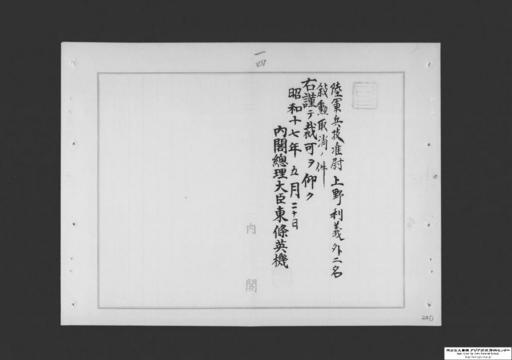 陸軍兵技准尉上野利義外二名
敍勲取消ノ件
右謹テ裁可ヲ仰ク
昭和十七年五月二十日
内閣總理大臣東條英機
内閣